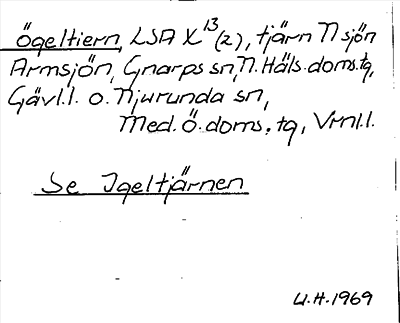 Ögeltiern, LSA X¹³(2), tjärn N sjön
Armsjön, Gnarps sn, N. Häls. doms. tg,
Gävl.l. o. Njurunda sn,
Med. Ö. doms. tg, Vrnl.l.
Se Igeltjärnen
U.H. 1969